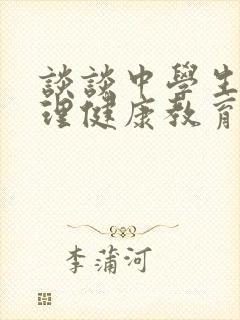 談談中學生
理健康教育
李蒲河